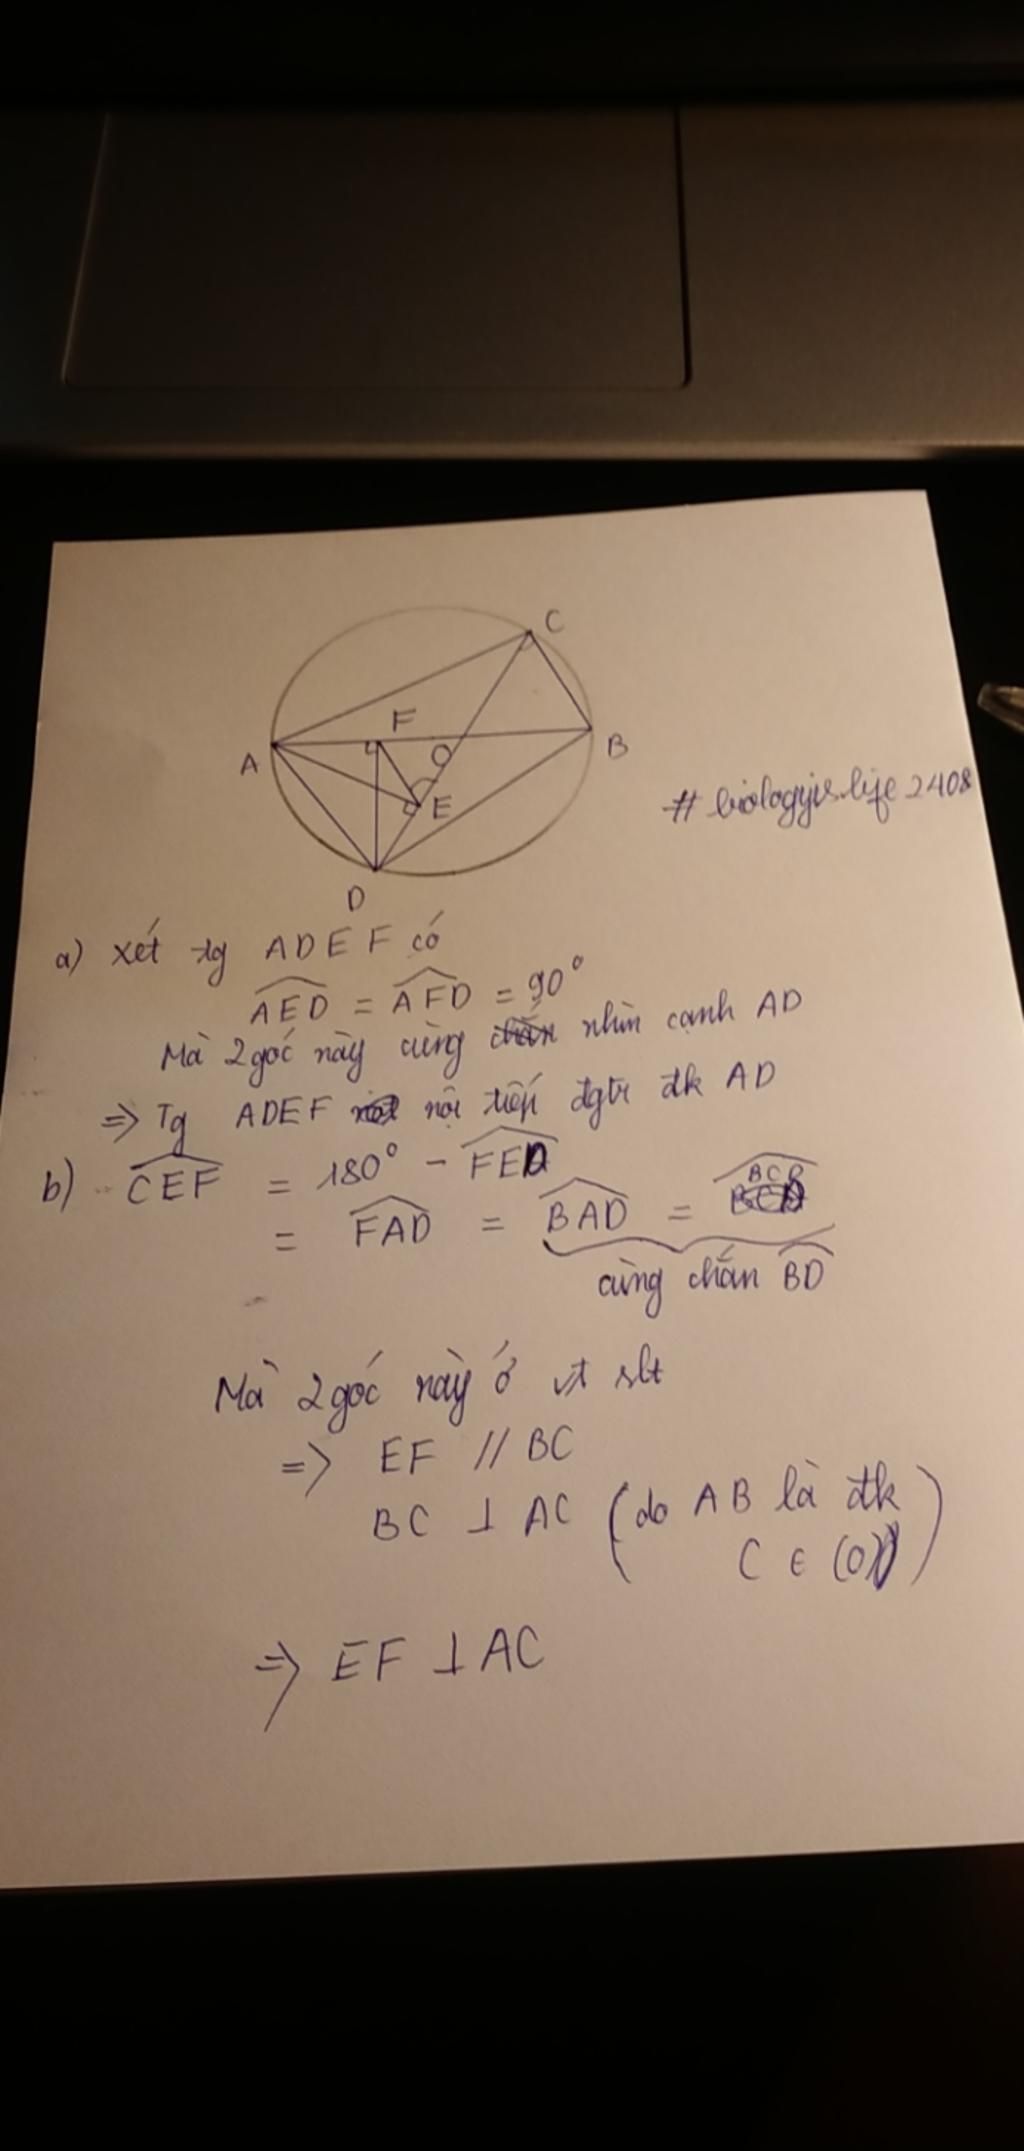 C
F
A
O
B
E
D
# biologyis.life 2408
a) Xét tg ADEF có
AED = AFD = 90°
Mà 2 góc này cùng nhìn cạnh AD
=> Tg ADEF nội tiếp đgtr đk AD
b) CEF = 180° - FED
= FAD = BAD = BCD
cùng chắn BD
Mà 2 góc này ở vt slt
=> EF // BC
BC ⊥ AC (do AB là đk
C ∈ (O))
=> EF ⊥ AC